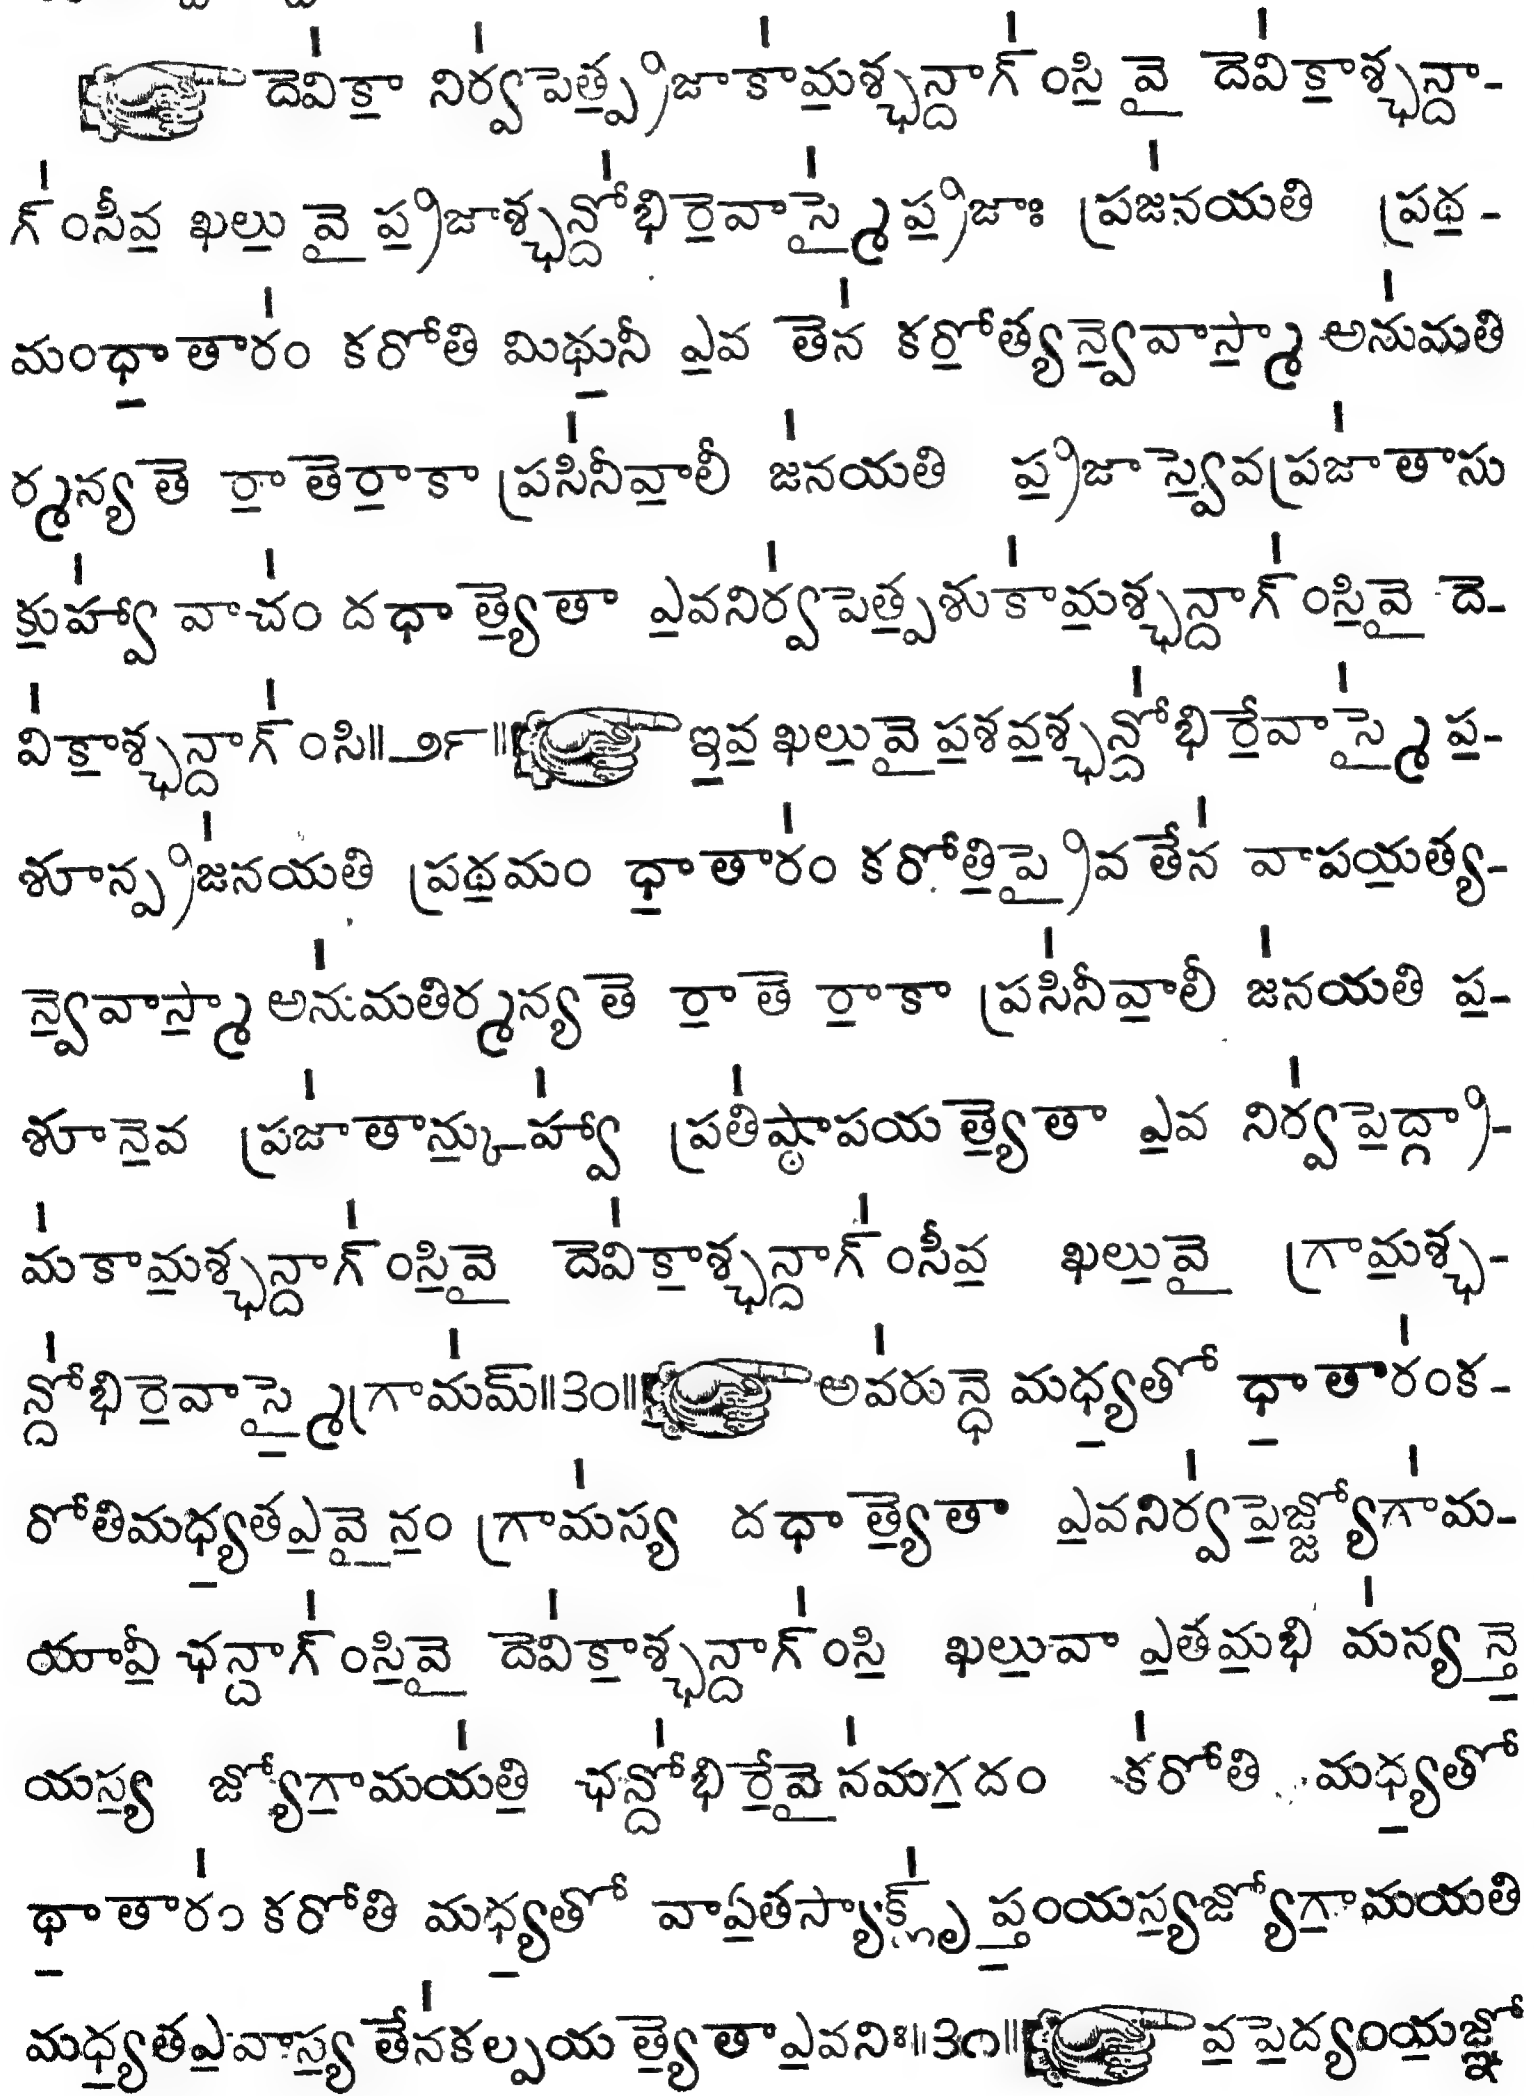 ☞ దెవి॑కా నిర్వ॑పెత్ప్ర॒జాకా॑మ॒శ్ఛన్దాగ్॑ంసి॒ వై దెవి॑కా॒శ్ఛన్దా-
గ్॑ంసీవ॒ ఖలు॒ వై ప్ర॒జాశ్ఛన్దో॑భిరె॒వాస్మై॑ ప్ర॒జాః ప్రజ॑నయతి ప్రథ॒-
మంధా॒తారం॑ కరోతి మిథు॒నీ ఎ॒వ తెన॑ కరో॒త్యన్వె॒వాస్మా॒ అను॑మతి
ర్మన్యతె రా॒తెరా॒కా ప్రసి॑నీవా॒లీ జ॑నయతి ప్ర॒జాస్వె॒వప్రజా॑తాసు
కు॒హ్వా॑ వాచం॑ దధాత్యె॒తా ఎ॒వనిర్వ॑పెత్ప॒శుకా॑మ॒శ్ఛన్దాగ్॑ంసి॒వై దె-
వి॑కా॒శ్ఛన్దాగ్॑ంసి॥౨౯॥☞ఇ॒వ॒ ఖలు॒వై ప॒శవ॒శ్ఛన్దో॑భిరే॒వాస్మై॑ ప॒-
శూన్ప్రజ॑నయతి ప్రథ॒మం ధా॒తారం॑ కరోతి॒ప్రైవ తేన॑ వాపయ॒త్య-
న్వె॒వాస్మా॒ అను॑మతిర్మన్యతె రా॒తె రా॒కా ప్రసి॑నీవా॒లీ జ॑నయతి ప॒-
శూనె॒వ ప్రజా॑తాన్కు॒హ్వా॑ ప్రతి॑ష్ఠాపయత్యె॒తా ఎ॒వ నిర్వ॑పె॒ద్గ్రా-
మ॑కామ॒శ్ఛన్దాగ్॑ంసి॒వై దెవి॑కా॒శ్ఛన్దాగ్॑ంసీవ॒ ఖలు॒వై గ్రామ॒శ్ఛ-
న్దో॑భిరె॒వాస్మై॒గ్రామ॑మ్॥౩౦॥☞అవ॑రున్ధె మధ్య॒తో ధా॒తారం॑క-
రోతిమధ్య॒తఎ॒వైనం॒ గ్రామ॑స్య దధాత్యె॒తా ఎ॒వనిర్వ॑పె॒జ్జ్యోగా॑మ-
యావీ॒ ఛన్దాగ్॑ంసి॒వై దెవి॑కా॒శ్ఛన్దాగ్॑ంసి॒ ఖలు॒వా ఎ॒తమ॒భి మ॑న్యన్తె॒
యస్య॒ జ్యోగా॒మయ॑తి॒ ఛన్దో॑భిరే॒వైన॑మగ॒దం క॑రోతి మధ్య॒తో
ధా॒తారం॑ కరోతి మధ్య॒తో వాఏ॒తస్యాక్లృ॑ప్తం॒యస్య॒జ్యోగా॒మయతి
మధ్య॒తఎ॒వాస్య॒ తేన॑కల్పయత్యె॒తాఎ॒వనిః॥౩౧॥☞వ॒పె॒ద్యంయ॒జ్ఞో